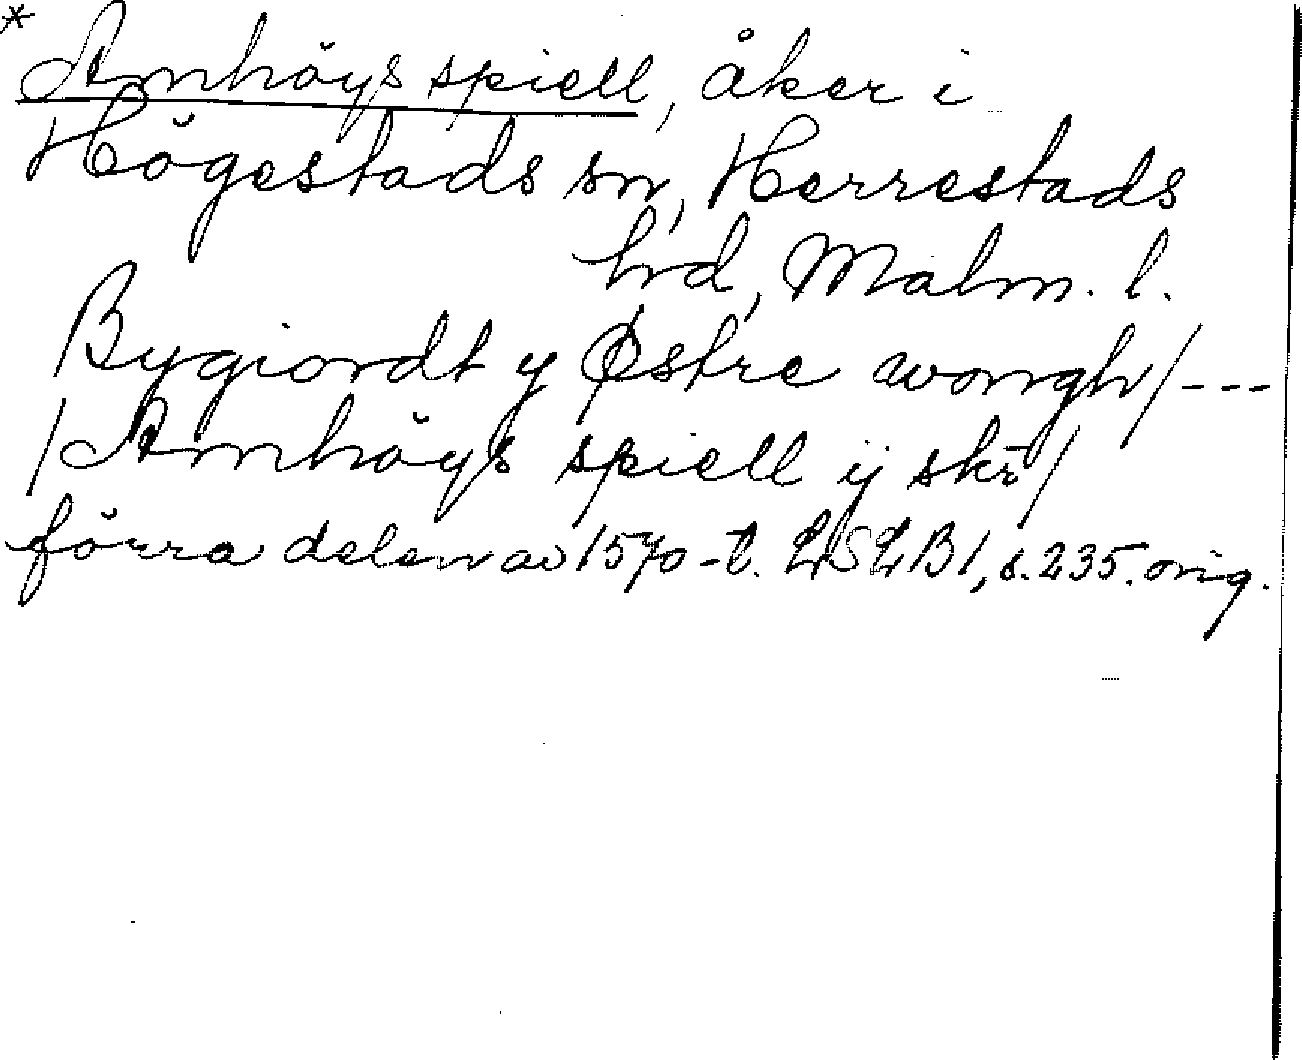 * Amhöys spiell, åker i
Högestads sn, Herrestads
hrd, Malm. l.
Bygiordt y Østre wongh/---
/Amhöys spiell ij skr/
förra delen av 1570-t. LSLB1, s. 235. orig.